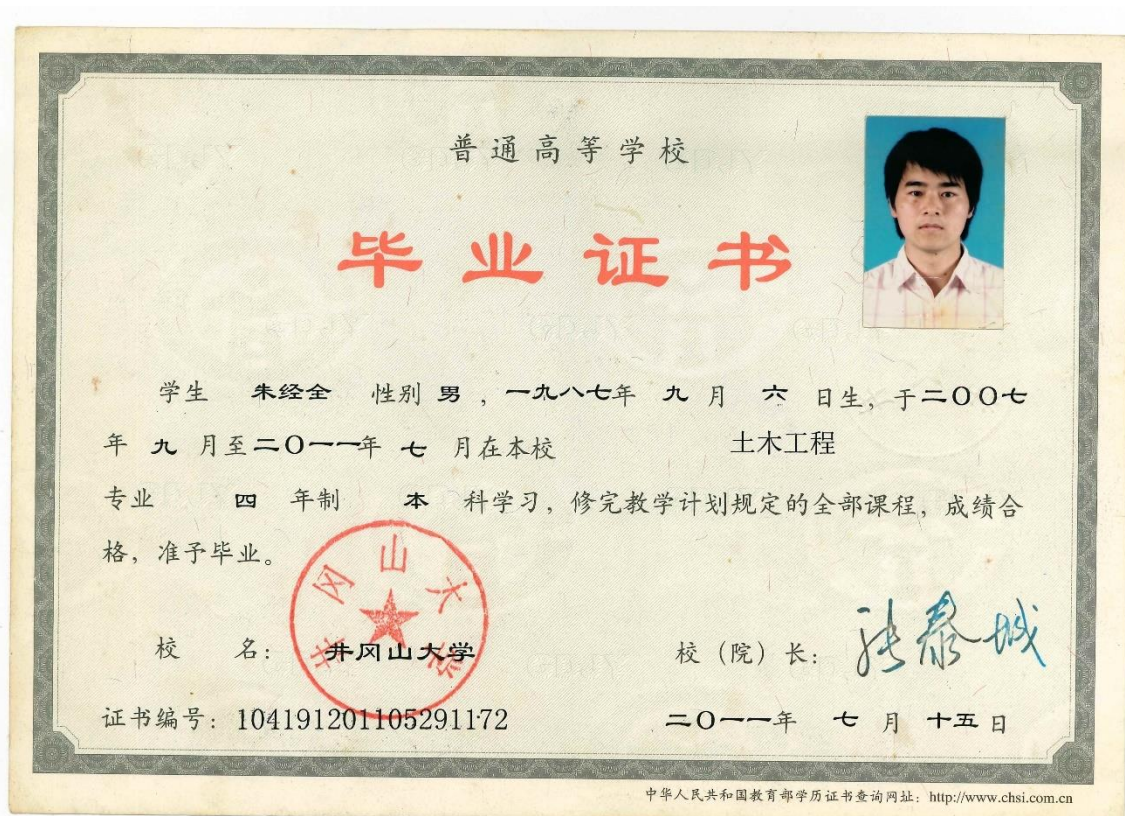 普通高等学校
毕业证书
学生 朱经全 性别 男，一九八七年 九 月 六 日生，于二〇〇七
年 九 月至二〇一一年 七 月在本校 土木工程
专业 四 年制 本 科学习，修完教学计划规定的全部课程，成绩合
格，准予毕业。
井冈山大学
校 名：井冈山大学 校（院）长：张泰城
证书编号：104191201105291172 二〇一一年 七 月 十五 日
中华人民共和国教育部学历证书查询网址：http://www.chsi.com.cn